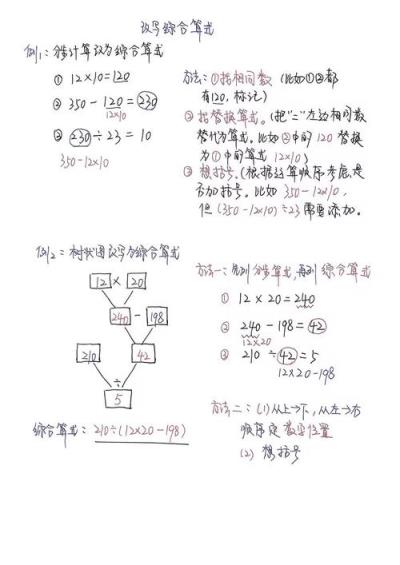 改写综合算式
例1:分步计算改为综合算式
① 12×10=120
② 350-120=230
12×10
③ 230÷23=10
350-12×10
方法:①找相同数(比如①②都
有120,标记)
②找替换算式。(把"="左边相同数
替代为算式。比如②中的120替换
为①中的算式12×10)
③想括号。(根据运算顺序考虑是
否加括号。比如350-12×10,
但(350-12×10)÷23需要添加。
例2:树状图改写为综合算式
12 × 20
240 - 198
210 42
÷
5
综合算式:210÷(12×20-198)
方法一:先列分步算式,再列综合算式
① 12×20=240
② 240-198=42
12×20
③ 210÷42=5
12×20-198
方法二:(1)从上→下,从左→右
顺序定数字位置
(2) 想括号